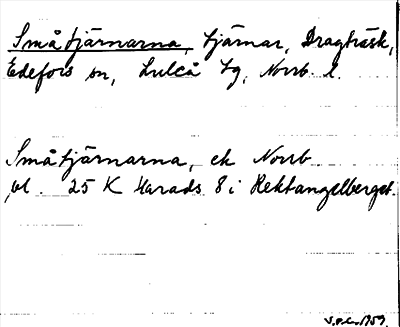 Småtjärnarna, tjärnar, Dragträsk,
Edefors sn, Luleå tg, Norrb. l.
Småtjärnarna, ek Norrb
bl. 25 K Harads 8 i Rektangelberget.
1959.